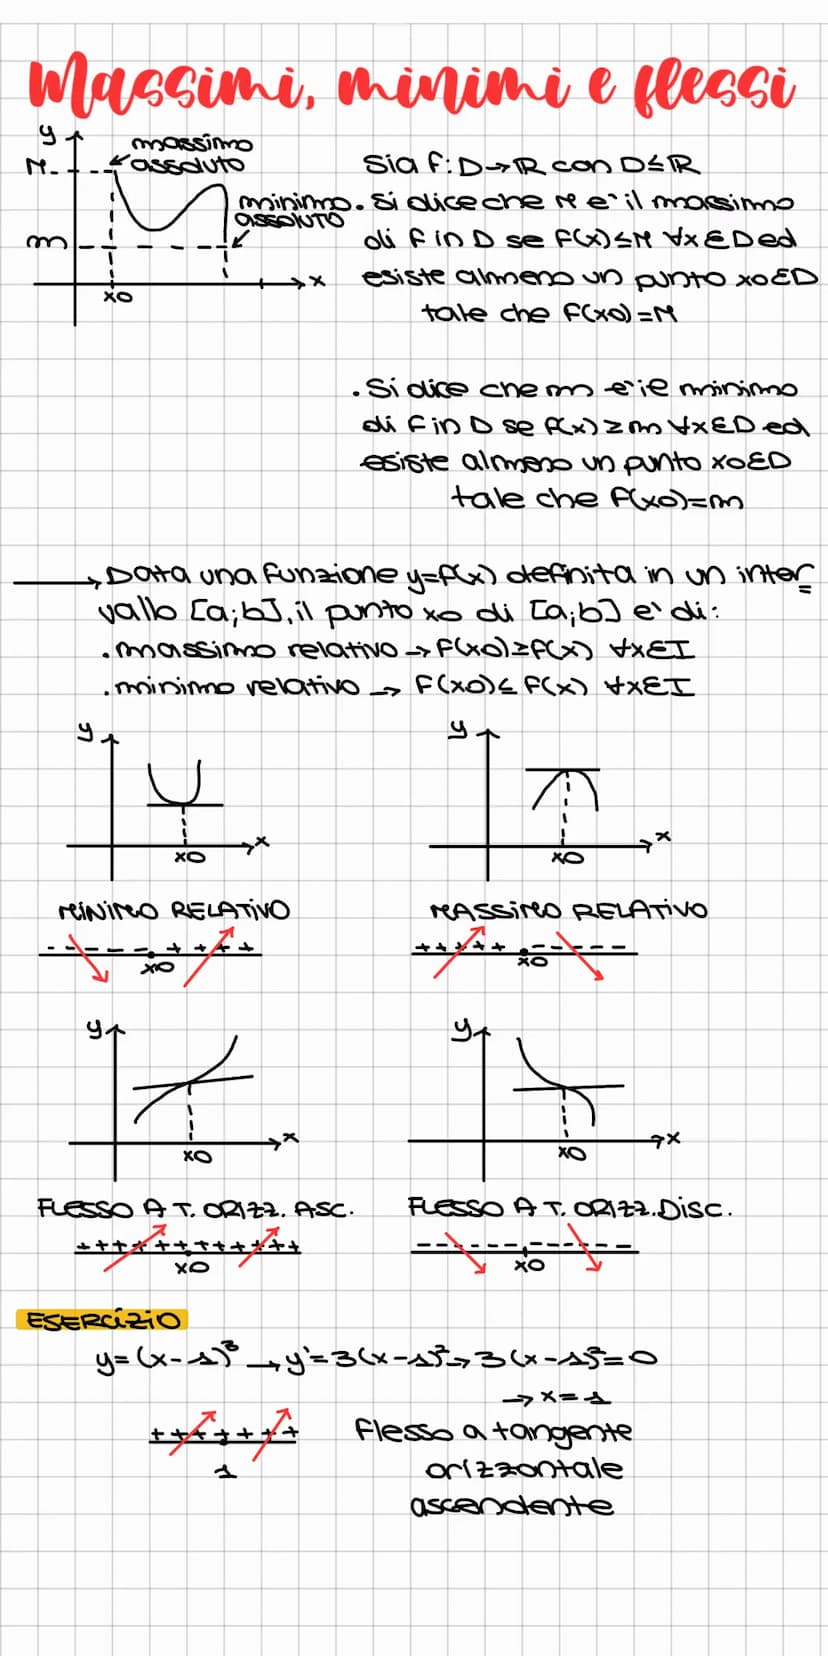 Massimi, minimi e flessi
y
M
massimo
assoluto
minimo
assoluto
m
x
x0
Sia f: D→ℝ con D≤ℝ
. Si dice che M e' il massimo
di f in D se f(x)≤M ∀x∈D ed
esiste almeno un punto x0∈D
tale che f(x0)=M
. Si dice che m e' il minimo
di f in D se f(x)≥m ∀x∈D ed
esiste almeno un punto x0∈D
tale che f(x0)=m
→ Data una funzione y=f(x) definita in un inter
vallo [a;b], il punto x0 di [a;b] e' di:
. massimo relativo → f(x0)≥f(x) ∀x∈I
. minimo relativo → f(x0)≤f(x) ∀x∈I
y
x
x0
y
x
x0
MINIMO RELATIVO
MASSIMO RELATIVO
- - - - - . + + + +
x0
+ + + + + . - - - - -
x0
y
x
x0
y
x
x0
FLESSO A T. ORIZZ. ASC.
FLESSO A T. ORIZZ. DISC.
+ + + + + + + + + + + + +
x0
- - - - - - - - - - - -
x0
ESERCIZIO
y=(x-1)³ → y'=3(x-1)² → 3(x-1)²=0
→ x=1
+ + + + + + +
1
flesso a tangente
orizzontale
ascendente